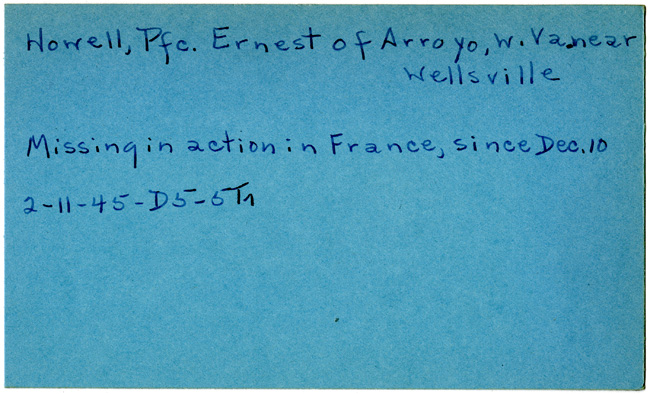 Howell, Pfc. Ernest of Arroyo, W. Va. near
Wellsville
Missing in action in France, since Dec. 10
2-11-45-D5-5Tn